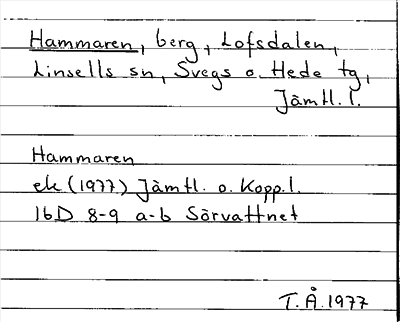 Hammaren, berg, Lofsdalen,
Linsells sn, Svegs o. Hede tg,
Jämtl. l.
Hammaren
ek (1977) Jämtl. o. Kopp. l.
16D 8-9 a-b Sörvattnet
T.Å. 1977